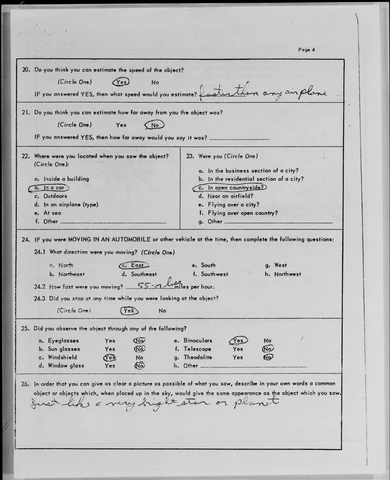 Page 4
20. Do you think you can estimate the speed of the object?
(Circle One) Yes No
IF you answered YES, then what speed would you estimate? faster than any airplane
21. Do you think you can estimate how far away from you the object was?
(Circle One) Yes No
IF you answered YES, then how far away would you say it was?
22. Where were you located when you saw the object?
(Circle One):
a. Inside a building
b. In a car
c. Outdoors
d. In an airplane (type)
e. At sea
f. Other
23. Were you (Circle One)
a. In the business section of a city?
b. In the residential section of a city?
c. In open countryside?
d. Near an airfield?
e. Flying over a city?
f. Flying over open country?
g. Other
24. IF you were MOVING IN AN AUTOMOBILE or other vehicle at the time, then complete the following questions:
24.1 What direction were you moving? (Circle One)
a. North c. East e. South g. West
b. Northeast d. Southeast f. Southwest h. Northwest
24.2 How fast were you moving? 55 miles miles per hour.
24.3 Did you stop at any time while you were looking at the object?
(Circle One) Yes No
25. Did you observe the object through any of the following?
a. Eyeglasses Yes No e. Binoculars Yes No
b. Sun glasses Yes No f. Telescope Yes No
c. Windshield Yes No g. Theodolite Yes No
d. Window glass Yes No h. Other
26. In order that you can give as clear a picture as possible of what you saw, describe in your own words a common
object or objects which, when placed up in the sky, would give the same appearance as the object which you saw.
Just like a very bright star or planet